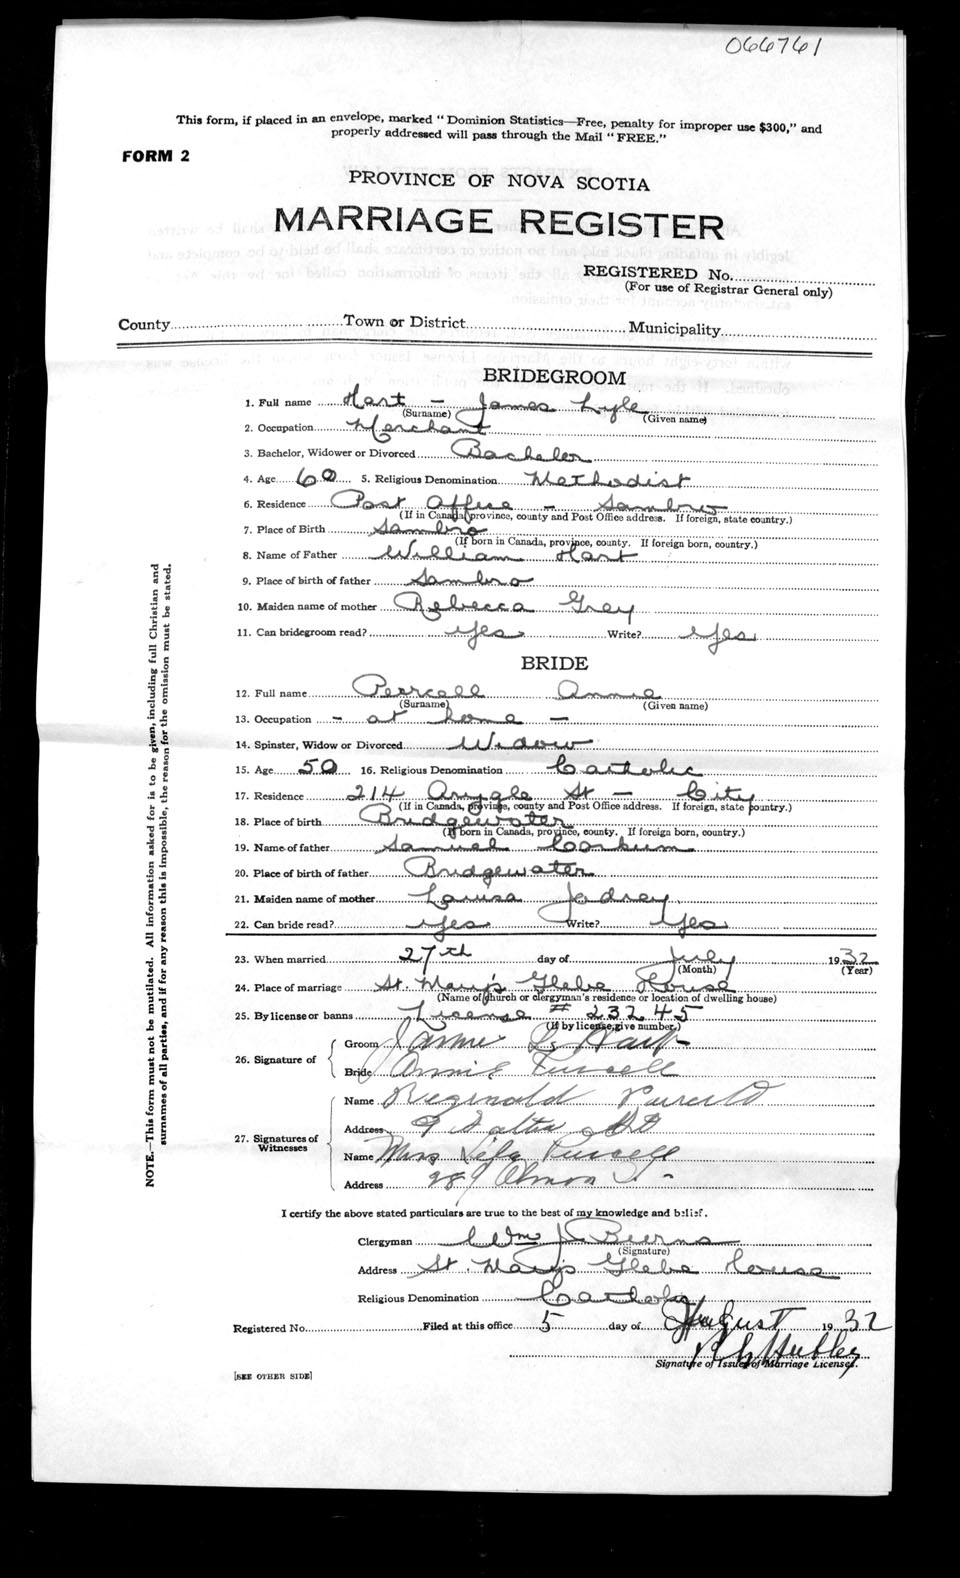 066761
This form, if placed in an envelope, marked "Dominion Statistics—Free, penalty for improper use $300," and
properly addressed will pass through the Mail "FREE."
FORM 2
PROVINCE OF NOVA SCOTIA
MARRIAGE REGISTER
REGISTERED No.
(For use of Registrar General only)
County Town or District Municipality
BRIDEGROOM
1. Full name Hart - James Lyle
(Surname) (Given name)
2. Occupation Merchant
3. Bachelor, Widower or Divorced Bachelor
4. Age 60 5. Religious Denomination Methodist
6. Residence Post Office - Sambro
(If in Canada, province, county and Post Office address. If foreign, state country.)
7. Place of Birth Sambro
(If born in Canada, province, county. If foreign born, country.)
8. Name of Father William Hart
9. Place of birth of father Sambro
10. Maiden name of mother Rebecca Grey
11. Can bridegroom read? Yes Write? Yes
BRIDE
12. Full name Peercell Annie
(Surname) (Given name)
13. Occupation - at home -
14. Spinster, Widow or Divorced Widow
15. Age 50 16. Religious Denomination Catholic
17. Residence 214 Argyle St - City
(If in Canada, province, county and Post Office address. If foreign, state country.)
18. Place of birth Bridgewater
(If born in Canada, province, county. If foreign born, country.)
19. Name of father Samuel Corkum
20. Place of birth of father Bridgewater
21. Maiden name of mother Louisa Jodrey
22. Can bride read? Yes Write? Yes
23. When married 27th day of July 1932
(Month) (Year)
24. Place of marriage St. Mary's Glebe House
(Name of church or clergyman's residence or location of dwelling house)
25. By license or banns License # 23245
(If by license, give number.)
26. Signature of
Groom James L Hart
Bride Annie Purcell
27. Signatures of
Witnesses
Name Reginald
Address 9
Name Mrs Purcell
Address 289 Almon St -
I certify the above stated particulars are true to the best of my knowledge and belief.
Clergyman Wm J Burns
(Signature)
Address St. Mary's Glebe House
Religious Denomination Catholic
Registered No. Filed at this office 5 day of August 1932
Hubley
Signature of Issuer of Marriage Licenses.
[SEE OTHER SIDE]
NOTE.—This form must not be mutilated. All information asked for is to be given, including full Christian and
surnames of all parties, and if for any reason this is impossible, the reason for the omission must be stated.